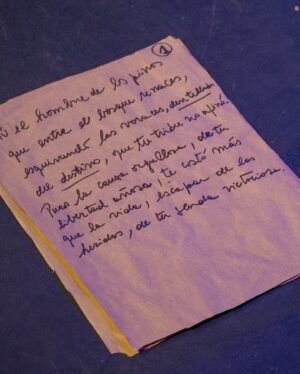 1
el hombre de los pinos
que entra el bosque
esquivando las voraces, dentelladas
del destino, que tu tribu no
Pura la causa orgullosa, de tu
libertad añosa, te costó más
que la vida, escapar de las
heridas, de tu senda victoriosa.